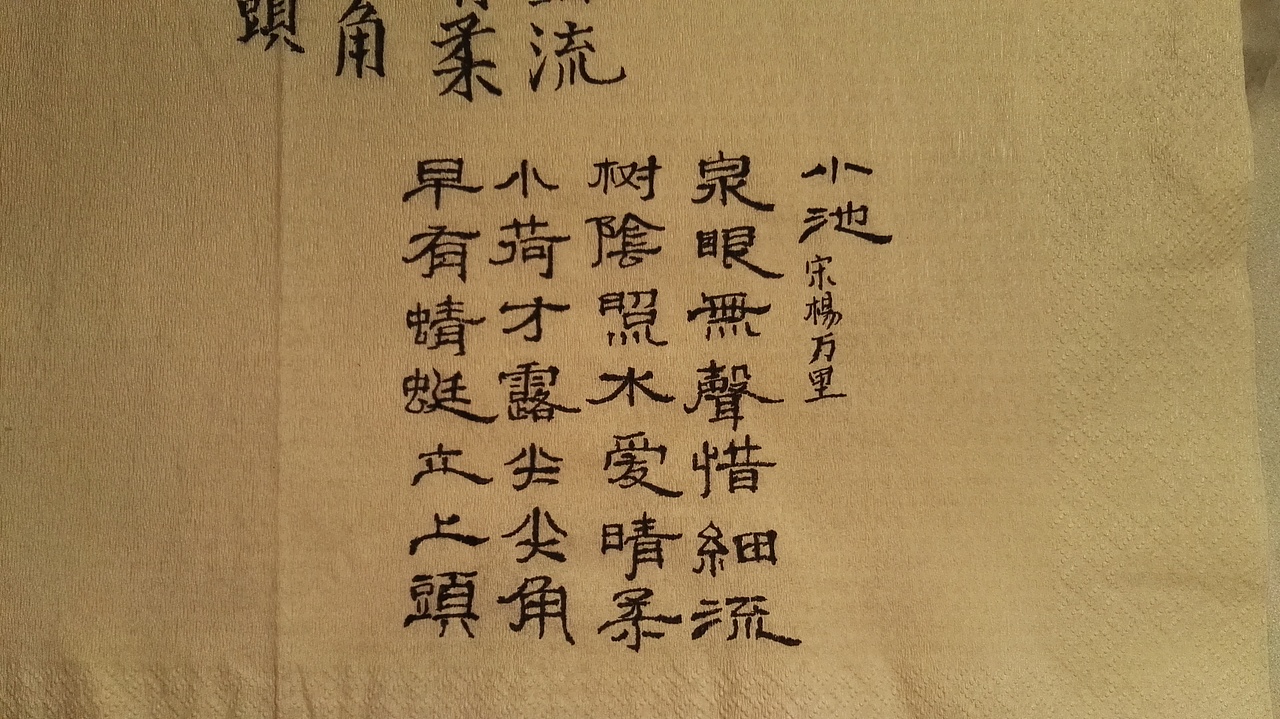 流
柔
角
頭
小池 宋楊万里
泉眼無聲惜細流
树陰照水爱晴柔
小荷才露尖尖角
早有蜻蜓立上頭